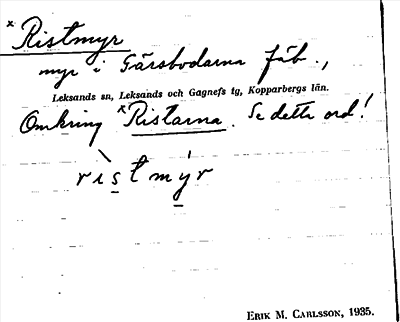 × Ristmyr
myr i Gärsbodarna fäb.,
Leksands sn, Leksands och Gagnefs tg, Kopparbergs län.
Omkring ×Ristarna. Se detta ord!
ri̖stmýr
ERIK M. CARLSSON, 1935.